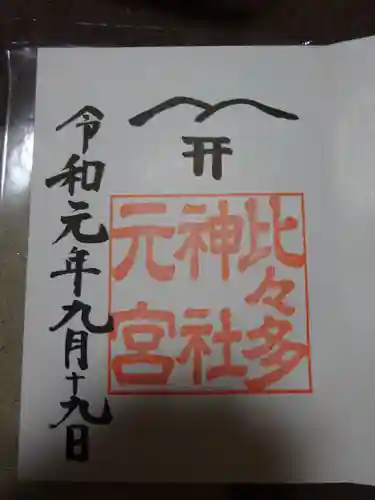 比々多
神社
元宮
令和元年九月十九日